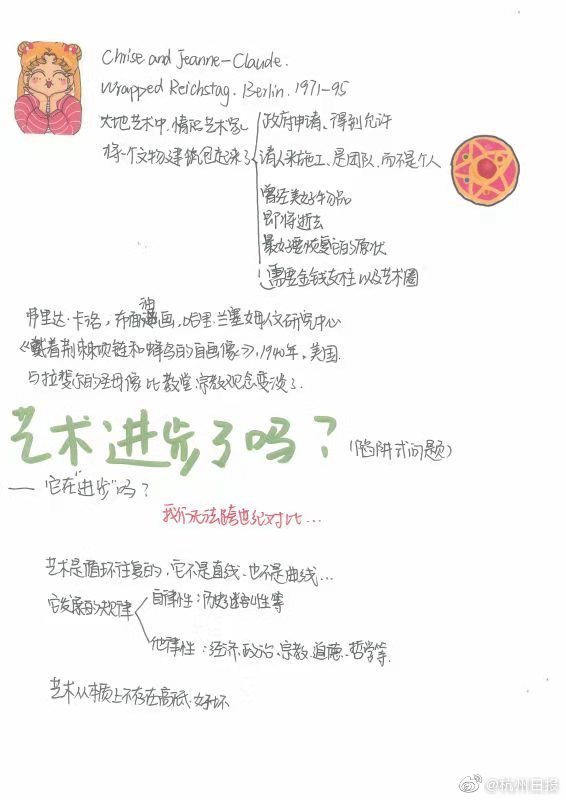 Chrise and Jeanne-Claude.
Wrapped Reichstag. Berlin. 1971-95
大地艺术中,情侣艺术家
将一个文物建筑包起来了
政府申请、得到允许
请人来施工、是团队,而不是个人
曾经美好物品
即将逝去
最好要恢复它的原状
需要金钱支柱以及艺术圈
弗里达·卡洛,布面油画,哈里·兰塞姆人文研究中心
《戴着荆棘项链和蜂鸟的自画像》,1940年,美国.
与拉斐尔的圣母像比教堂、宗教观念变淡了.
艺术进步了吗?(陷阱式问题)
—— 它在"进步"吗?
我们无法隔世纪对比...
艺术是循环往复的,它不是直线、也不是曲线...
它发展的规律
自律性:历史 性等
他律性:经济、政治、宗教、道德、哲学等.
艺术从本质上不存在高低、好坏
@杭州日报